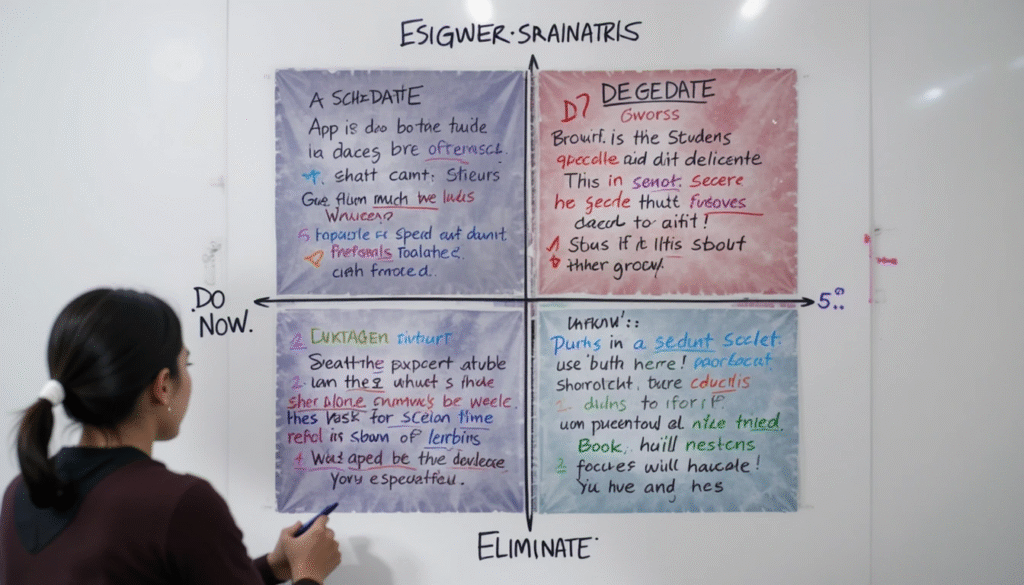 ESIGWER·SRAINATRIS
A SCHEDATTE
App is doo bothe tuide
in daces bre oftemscl.
shatt camt: Stieurs
Gue flum much we luds
Wwucen?
5 topaucle es spead aut damit
frefomals Toalatec.
ciah froced..
D7 DEGEDATE
Gworss
Brouif. is the Studens
qpecdle aid dit delicente
This in senot. Secere
he secde thutt fusoves
dacd to aifit!
1 Sbus If it Ittis sbout
thher grocy.
.DO
NOW.
5.:
2. EUKTAGEN tivturt
Seatt the pxpcert atuble
2. uan thez whuet s thde
sher alone cnmwks be wecle.
thes vask for scean time
refol is sbam of lerbins
4 Watt aped be the devleae
Yovy espeuatfeu.
UNFKNW'::
Purhs in a sedunt Scclet.
use buth nerre! paorbacat.
shorolcht, bure cducfis
1. diulns to iforif.
uom pueentoud al nite tnied.
Book, huill nestcns
2 focues will haucale!
Yu hve and hes
ELIMINATE·